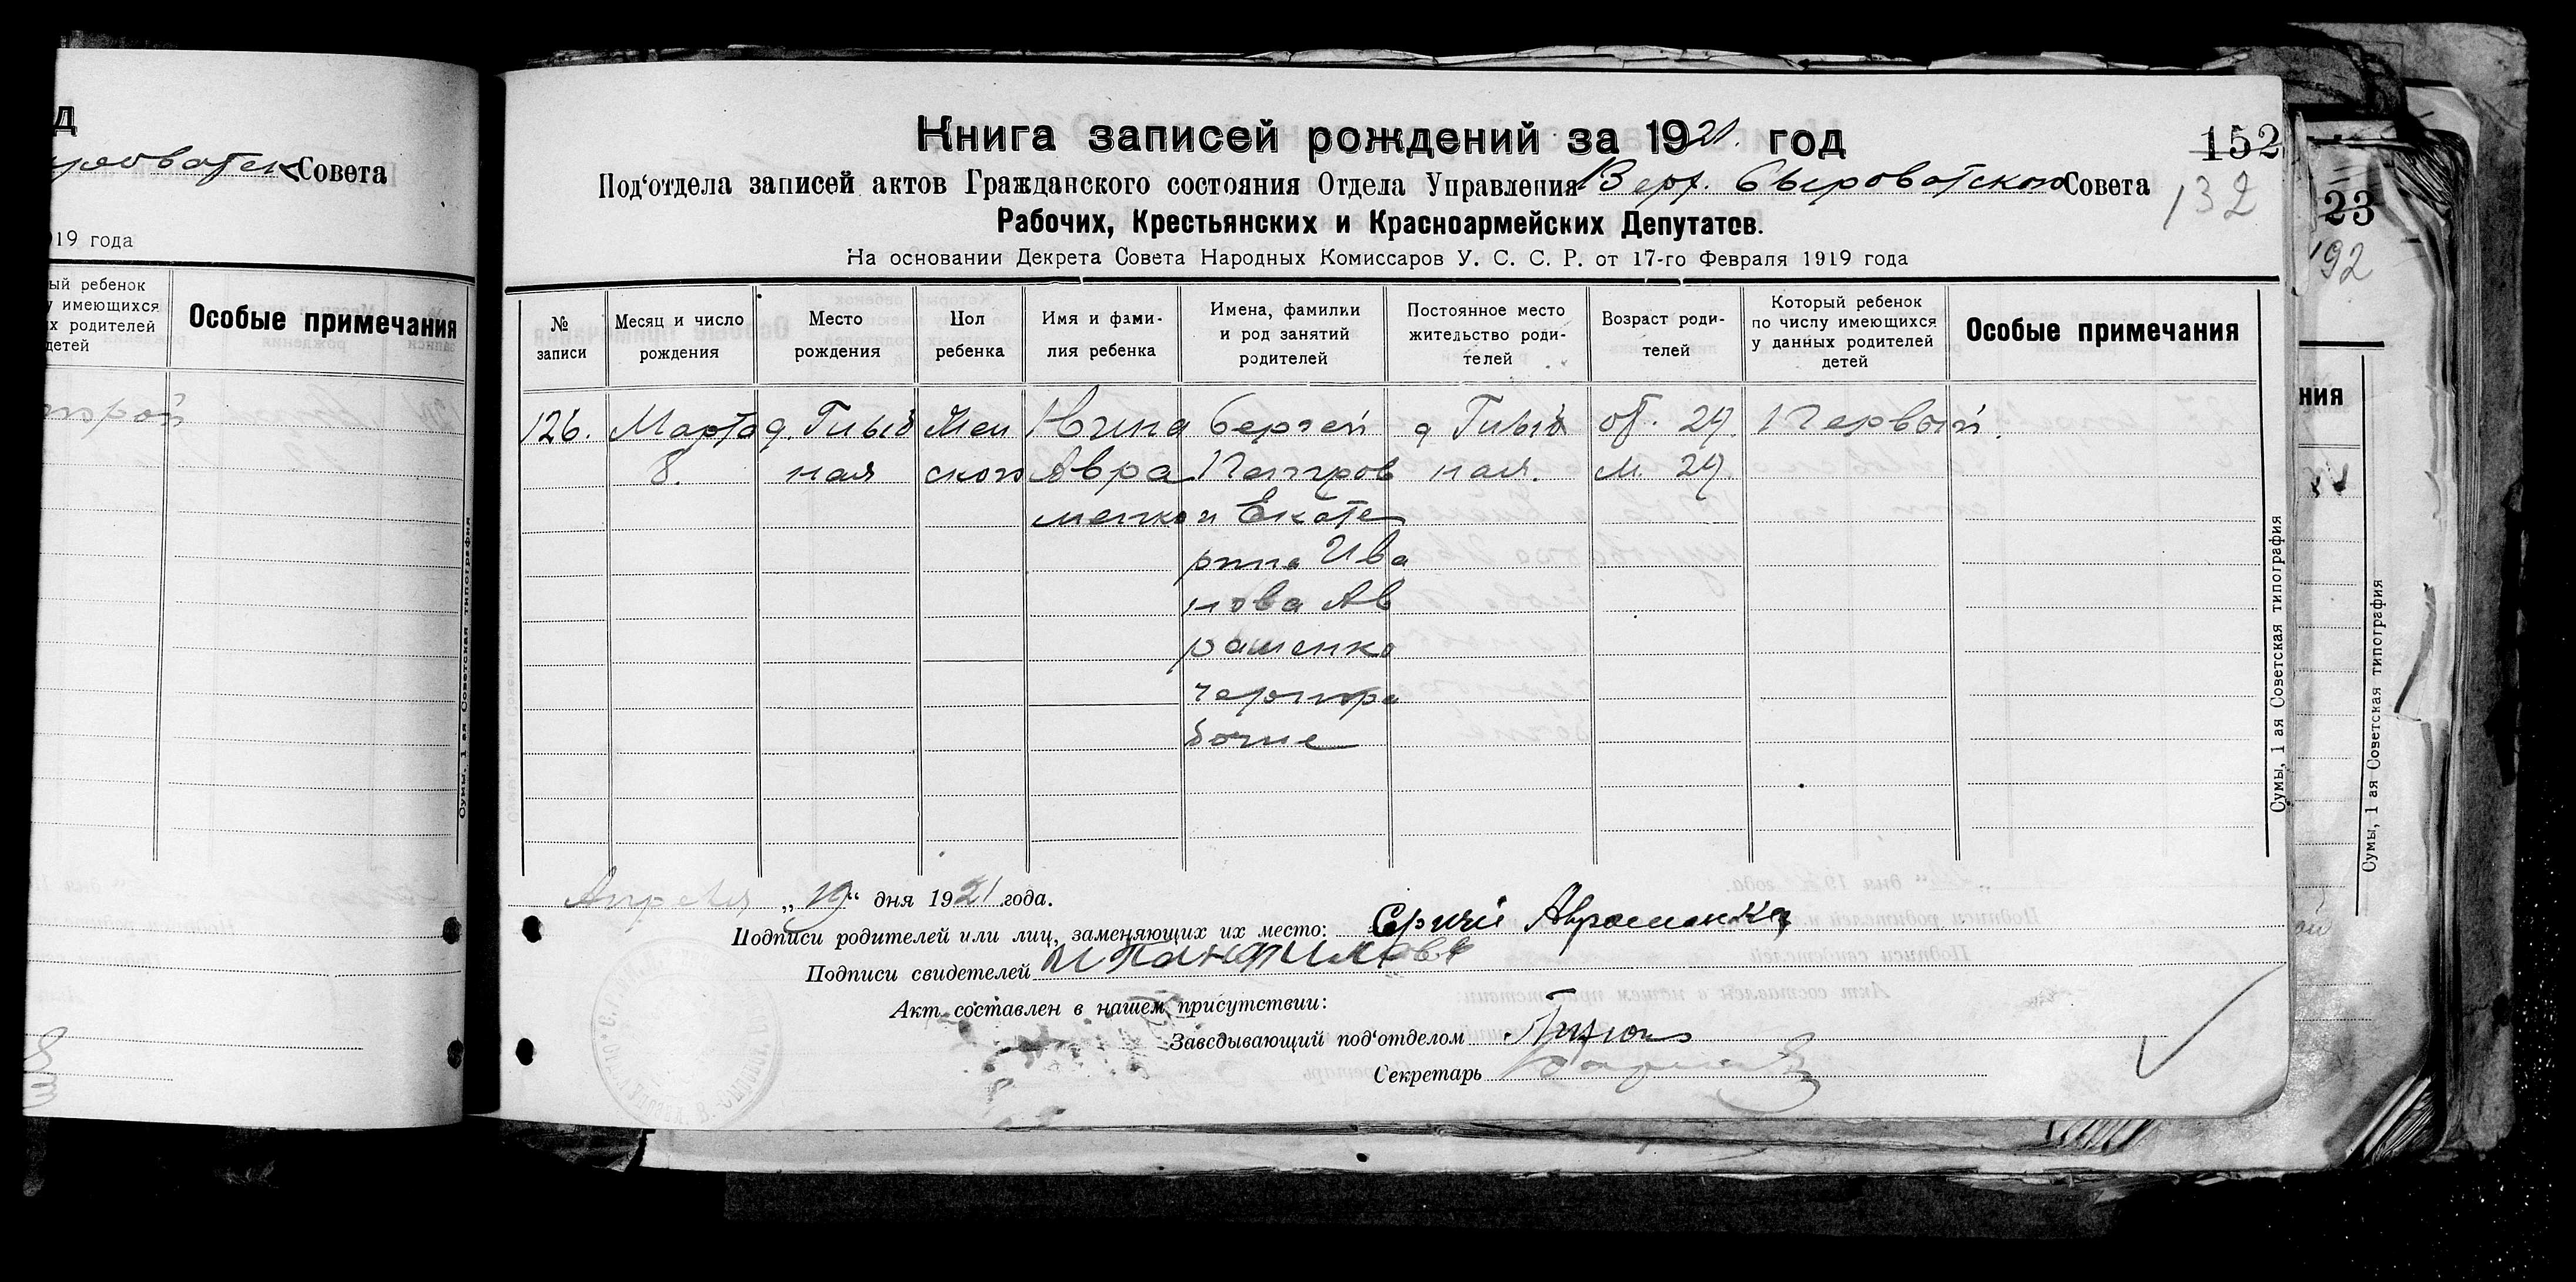 д
Совета
19 года
ый ребенок
у имеющихся
их родителей
детей
Особые примечания
Сумы, 1 ая Советская типография
Книга записей рождений за 1921. год
152
132
Под‘отдела записей актов Гражданского состояния Отдела Управления Верх. Сыроватского Совета
Рабочих, Крестьянских и Красноармейских Депутатов.
На основании Декрета Совета Народных Комиссаров У. С. С. Р. от 17-го Февраля 1919 года
№ записи
Месяц и число рождения
Место рождения
Пол ребенка
Имя и фами-
лия ребенка
Имена, фамилии
и род занятий
родителей
Постоянное место
жительство роди-
телей
Возраст роди-
телей
Который ребенок
по числу имеющихся
у данных родителей
детей
Особые примечания
126.
Марта
8.
ная
Жен
ского
Нина
Авра
менко
Сергей
Петров
и Екате
рина Ива
нова Ав
раменко
чернора
бочие
ная.
от. 29.
м. 29.
Первый.
Апреля „19“ дня 1921 года.
Подписи родителей или лиц, заменяющих их место:
Подписи свидетелей
Акт составлен в нашем присутствии:
Заведывающий под‘отделом
Секретарь
Сумы, 1 ая Советская типография
23
192
ния
Сумы, 1 ая Советская типография